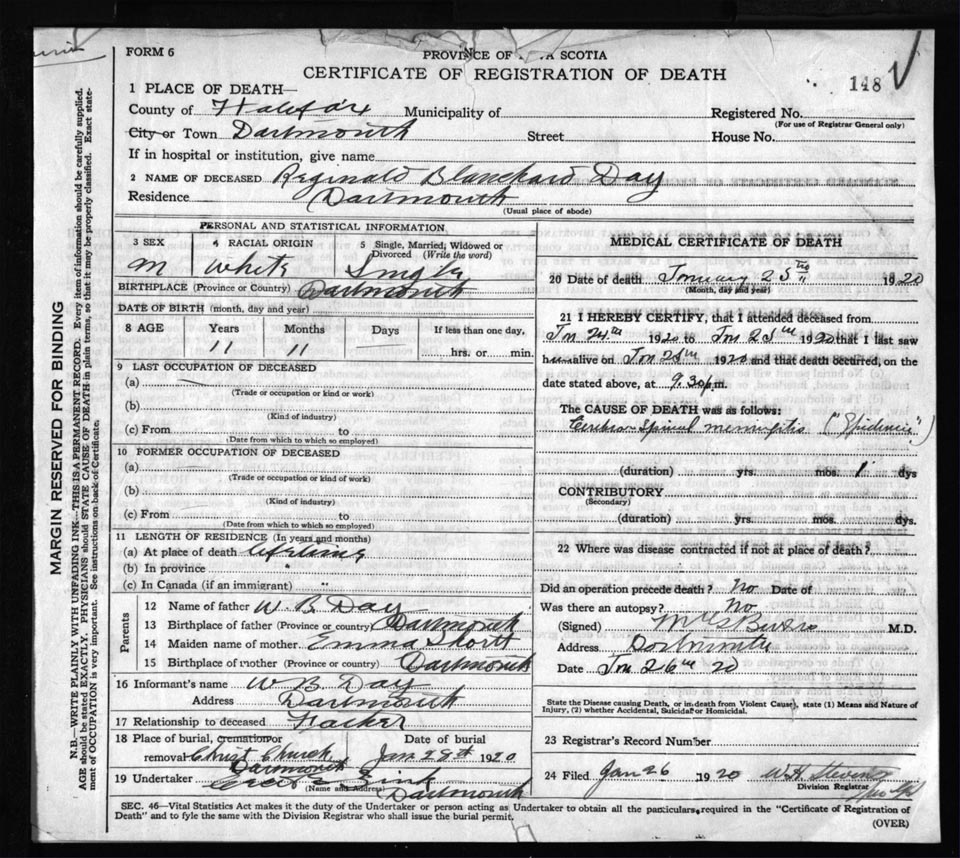 FORM 6
PROVINCE OF SCOTIA
CERTIFICATE OF REGISTRATION OF DEATH
148
1 PLACE OF DEATH—
County of Halifax Municipality of Registered No.
(For use of Registrar General only)
City or Town Dartmouth Street House No.
If in hospital or institution, give name
2 NAME OF DECEASED Reginald Blanchard Day
Residence Dartmouth
(Usual place of abode)
PERSONAL AND STATISTICAL INFORMATION
3 SEX 4 RACIAL ORIGIN 5 Single, Married, Widowed or Divorced (Write the word)
M White Single
BIRTHPLACE (Province or Country) Dartmouth
DATE OF BIRTH (month, day and year)
8 AGE Years Months Days If less than one day,
11 11 hrs. or min.
9 LAST OCCUPATION OF DECEASED
(a)
(Trade or occupation or kind or work)
(b)
(Kind of industry)
(c) From to
(Date from which to which so employed)
10 FORMER OCCUPATION OF DECEASED
(a)
(Trade or occupation or kind of work)
(b)
(Kind of industry)
(c) From to
(Date from which to which so employed)
11 LENGTH OF RESIDENCE (In years and months)
(a) At place of death lifetime
(b) In province "
(c) In Canada (if an immigrant) "
Parents
12 Name of father W. B. Day
13 Birthplace of father (Province or country) Dartmouth
14 Maiden name of mother Emma
15 Birthplace of mother (Province or country) Dartmouth
16 Informant's name W B. Day
Address Dartmouth
17 Relationship to deceased Father
18 Place of burial, cremation or removal Christ Church Dartmouth
Date of burial Jan 28th 1920
19 Undertaker Zink
(Name and Address) Dartmouth
MEDICAL CERTIFICATE OF DEATH
20 Date of death January 25th 1920
(Month, day and year)
21 I HEREBY CERTIFY, that I attended deceased from
Jan 24th 1920 to Jan 25th 1920 that I last saw
him alive on Jan 25th 1920 and that death occurred, on the
date stated above, at 9.30 p.m.
The CAUSE OF DEATH was as follows:
Cerebro-Spinal meningitis ("Epidemic")
(duration) yrs. mos. 1 dys
CONTRIBUTORY
(Secondary)
(duration) yrs. mos. dys.
22 Where was disease contracted if not at place of death?
Did an operation precede death? No Date of
Was there an autopsy? No
(Signed) M.D.
Address Dartmouth
Date Jan 26th 20
State the Disease causing Death, or in death from Violent Cause, state (1) Means and Nature of
Injury, (2) whether Accidental, Suicidal or Homicidal.
23 Registrar's Record Number
24 Filed Jan 26 1920 W. H. Stevens
Division Registrar
SEC. 46—Vital Statistics Act makes it the duty of the Undertaker or person acting as Undertaker to obtain all the particulars required in the "Certificate of Registration of
Death" and to fyle the same with the Division Registrar who shall issue the burial permit.
(OVER)
MARGIN RESERVED FOR BINDING
N.B.—WRITE PLAINLY WITH UNFADING INK—THIS IS A PERMANENT RECORD. Every item of information should be carefully supplied.
AGE should be stated EXACTLY. PHYSICIANS should STATE CAUSE OF DEATH in plain terms, so that it may be properly classified. Exact state-
ment of OCCUPATION is very important. See instructions on back of Certificate.